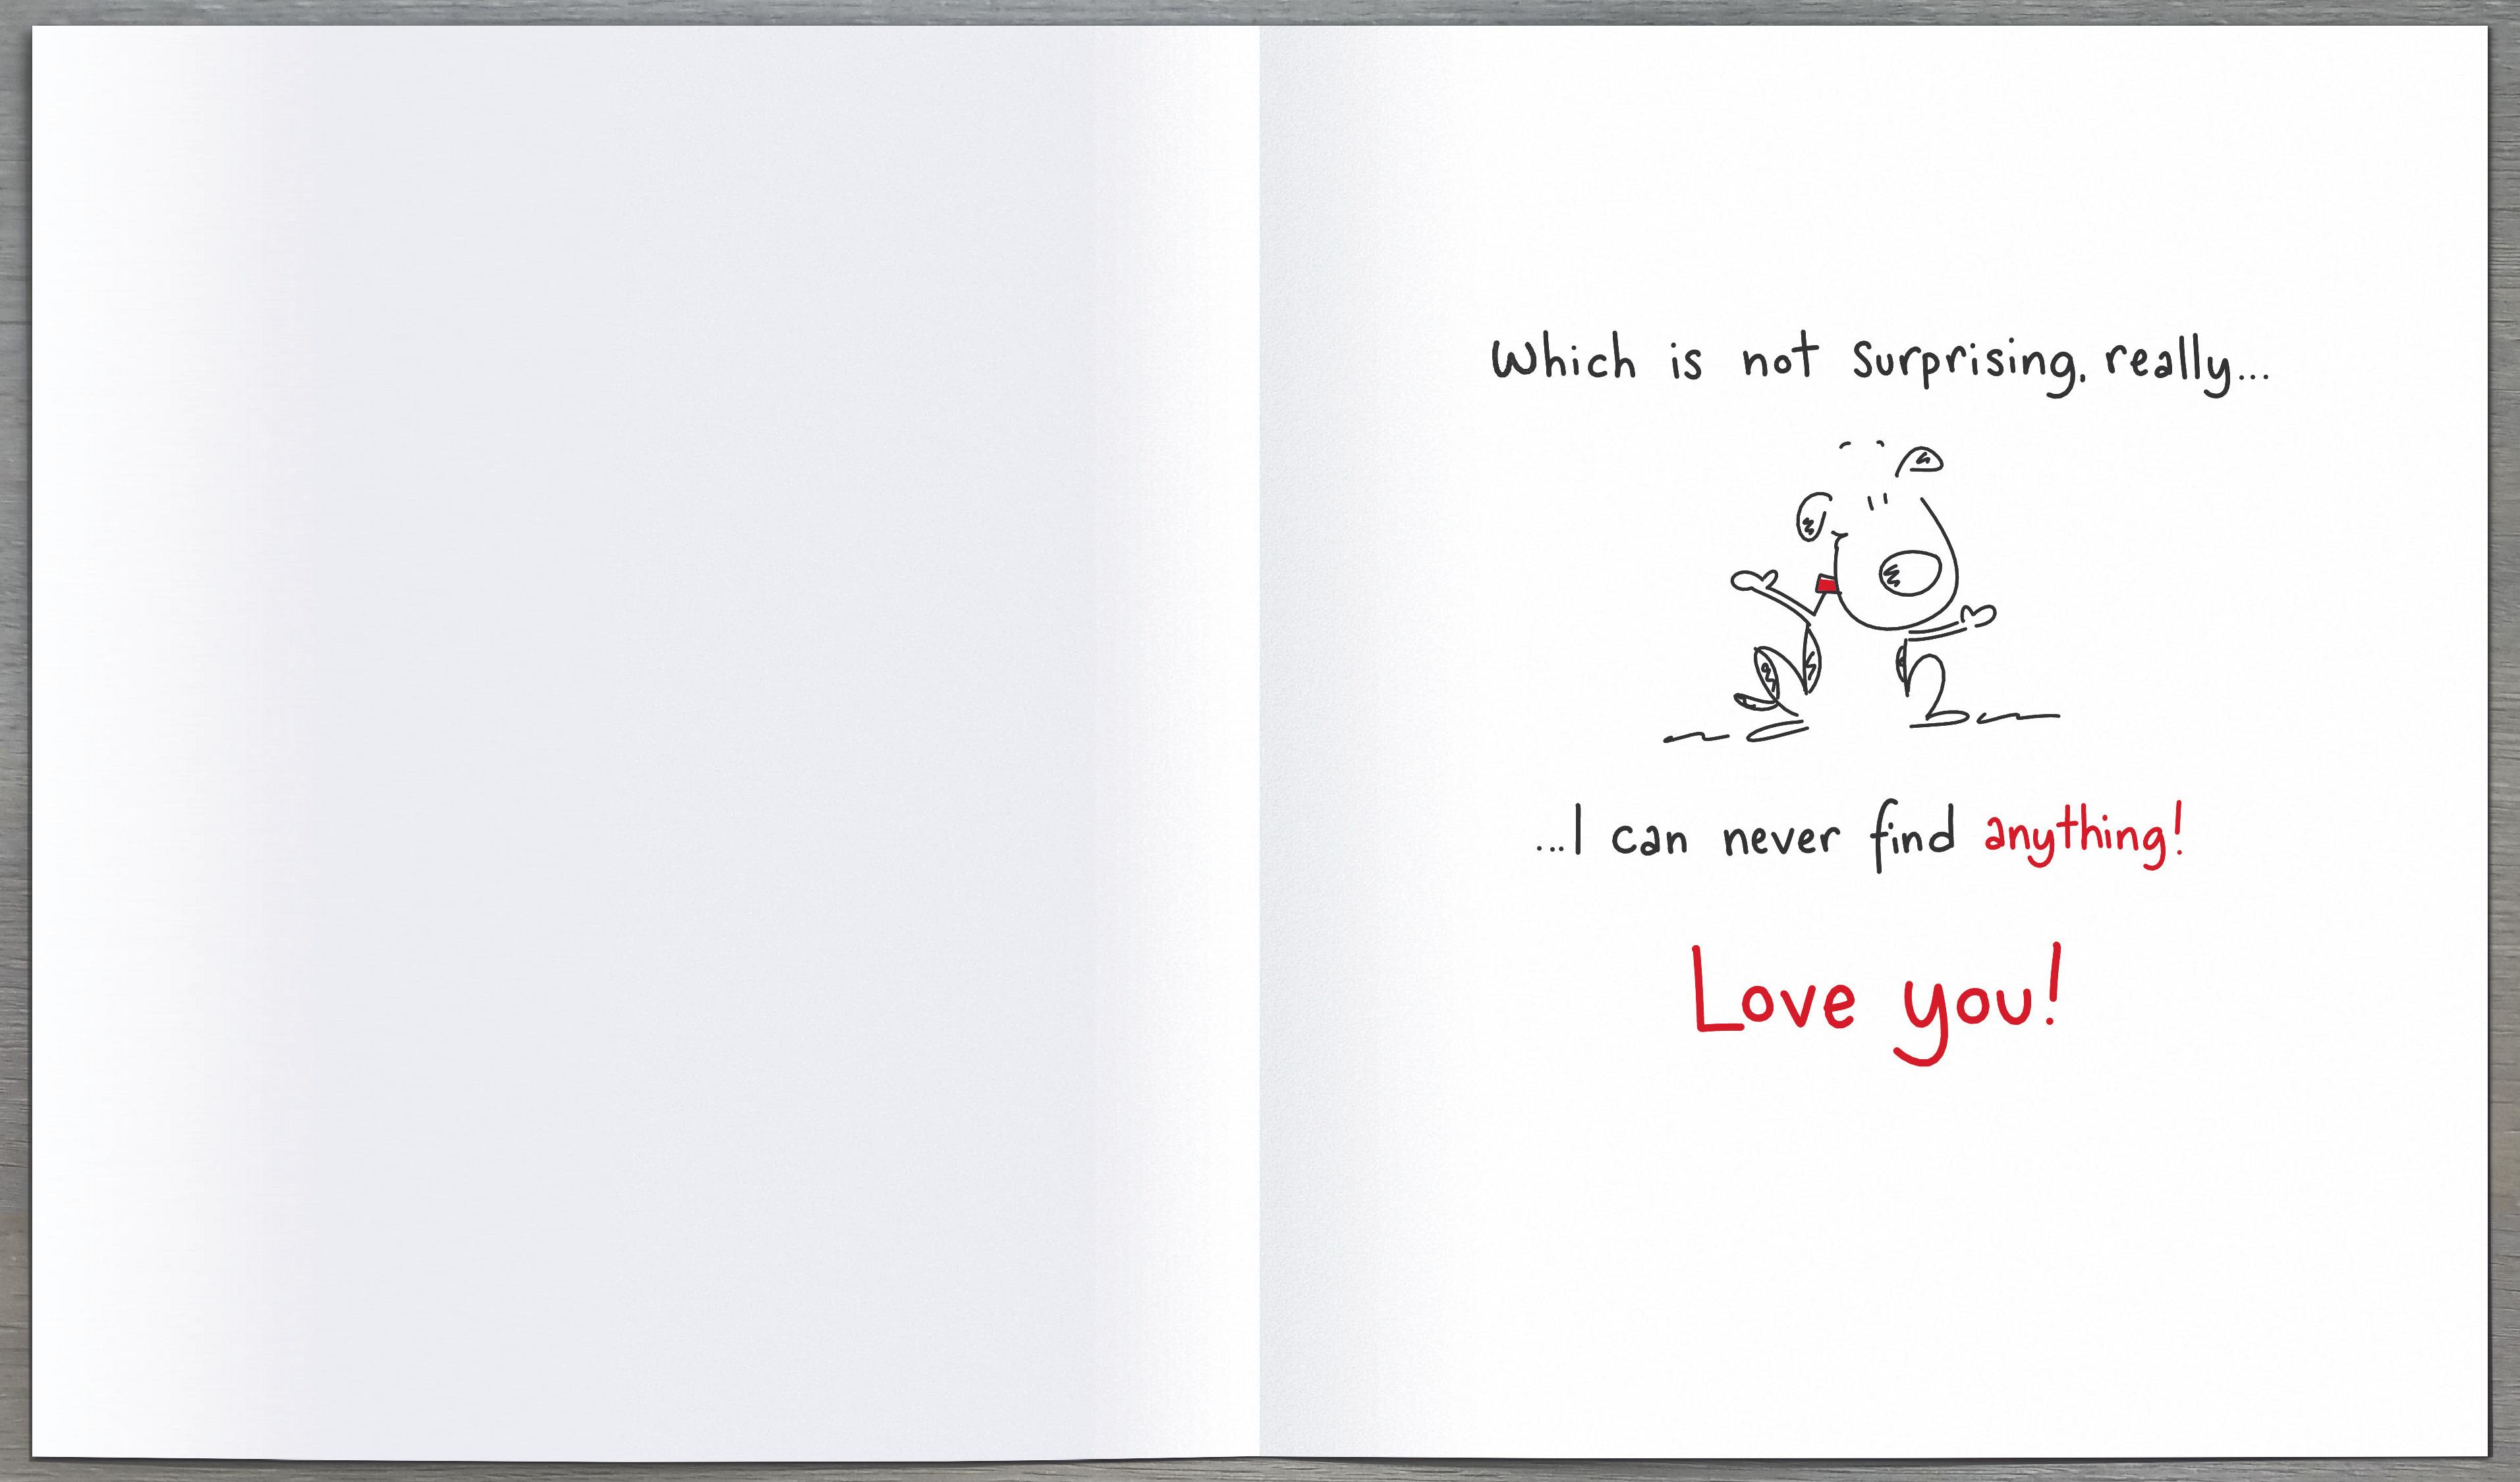 Which is not surprising, really...
...I can never find anything!
Love you!